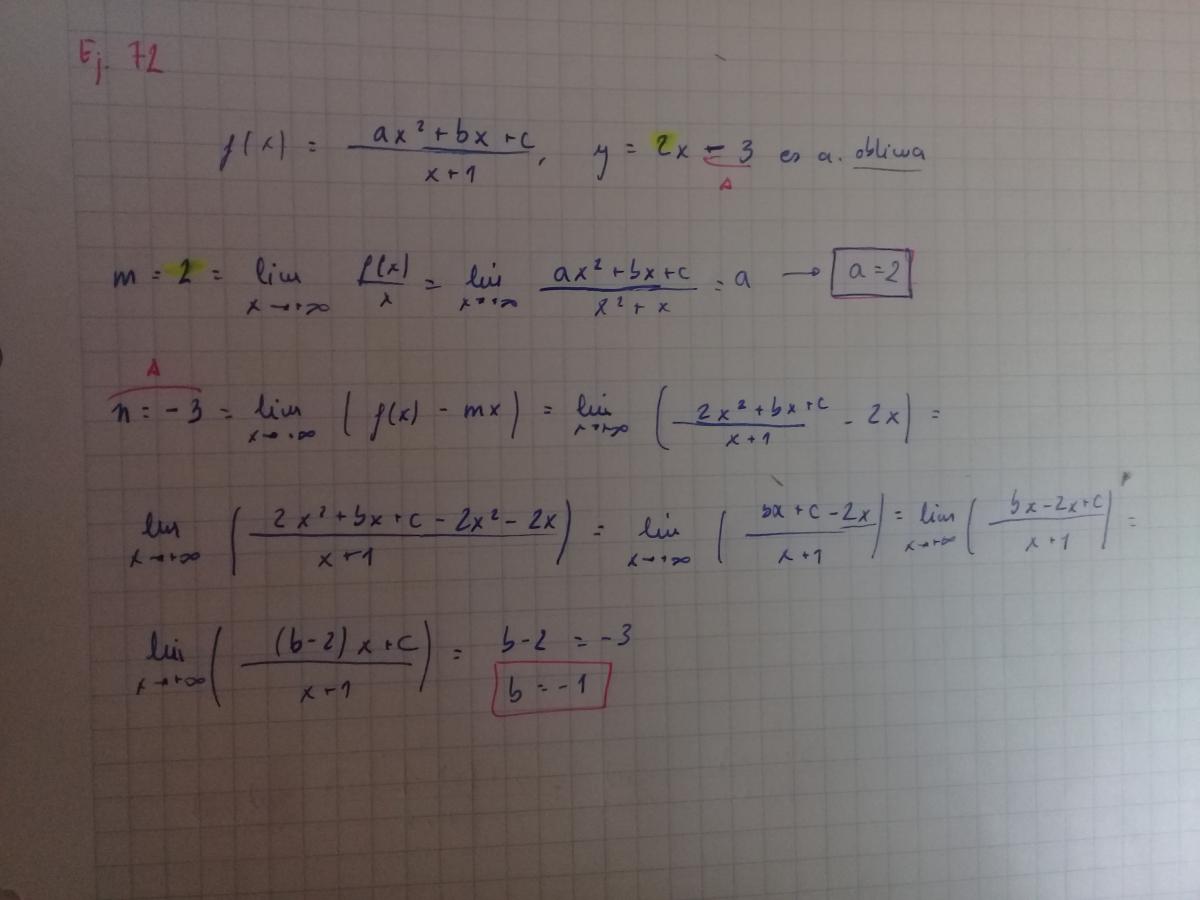 Ej. 72
f(x) = (ax² + bx + c)/(x+1), y = 2x - 3 es a. oblicua
Δ
m = 2 = lim x→+∞ f(x)/x = lim x→+∞ (ax² + bx + c)/(x² + x) = a → a = 2
Δ
n = -3 = lim x→+∞ (f(x) - mx) = lim x→+∞ ((2x² + bx + c)/(x+1) - 2x) =
lim x→+∞ ((2x² + bx + c - 2x² - 2x)/(x+1)) = lim x→+∞ ((bx + c - 2x)/(x+1)) = lim x→+∞ ((bx - 2x + c)/(x+1)) =
lim x→+∞ (((b-2)x + c)/(x+1)) = b-2 = -3
b = -1